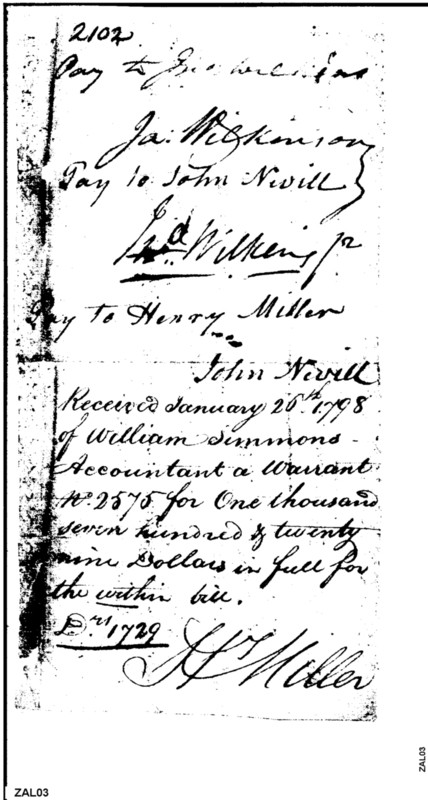 2102
Pay to Jno Wilkins
Ja: Wilkinson
Pay to John Nevill
Jno. Wilkins Jr
Pay to Henry Miller
John Nevill
Received January 26th. 1798
of William Simmons
Accountant a Warrant
No. 2575 for One thousand
seven hundred & twenty
nine Dollars in full for
the within bill.
Drs 1729
Hy Miller
ZAL03
ZAL03